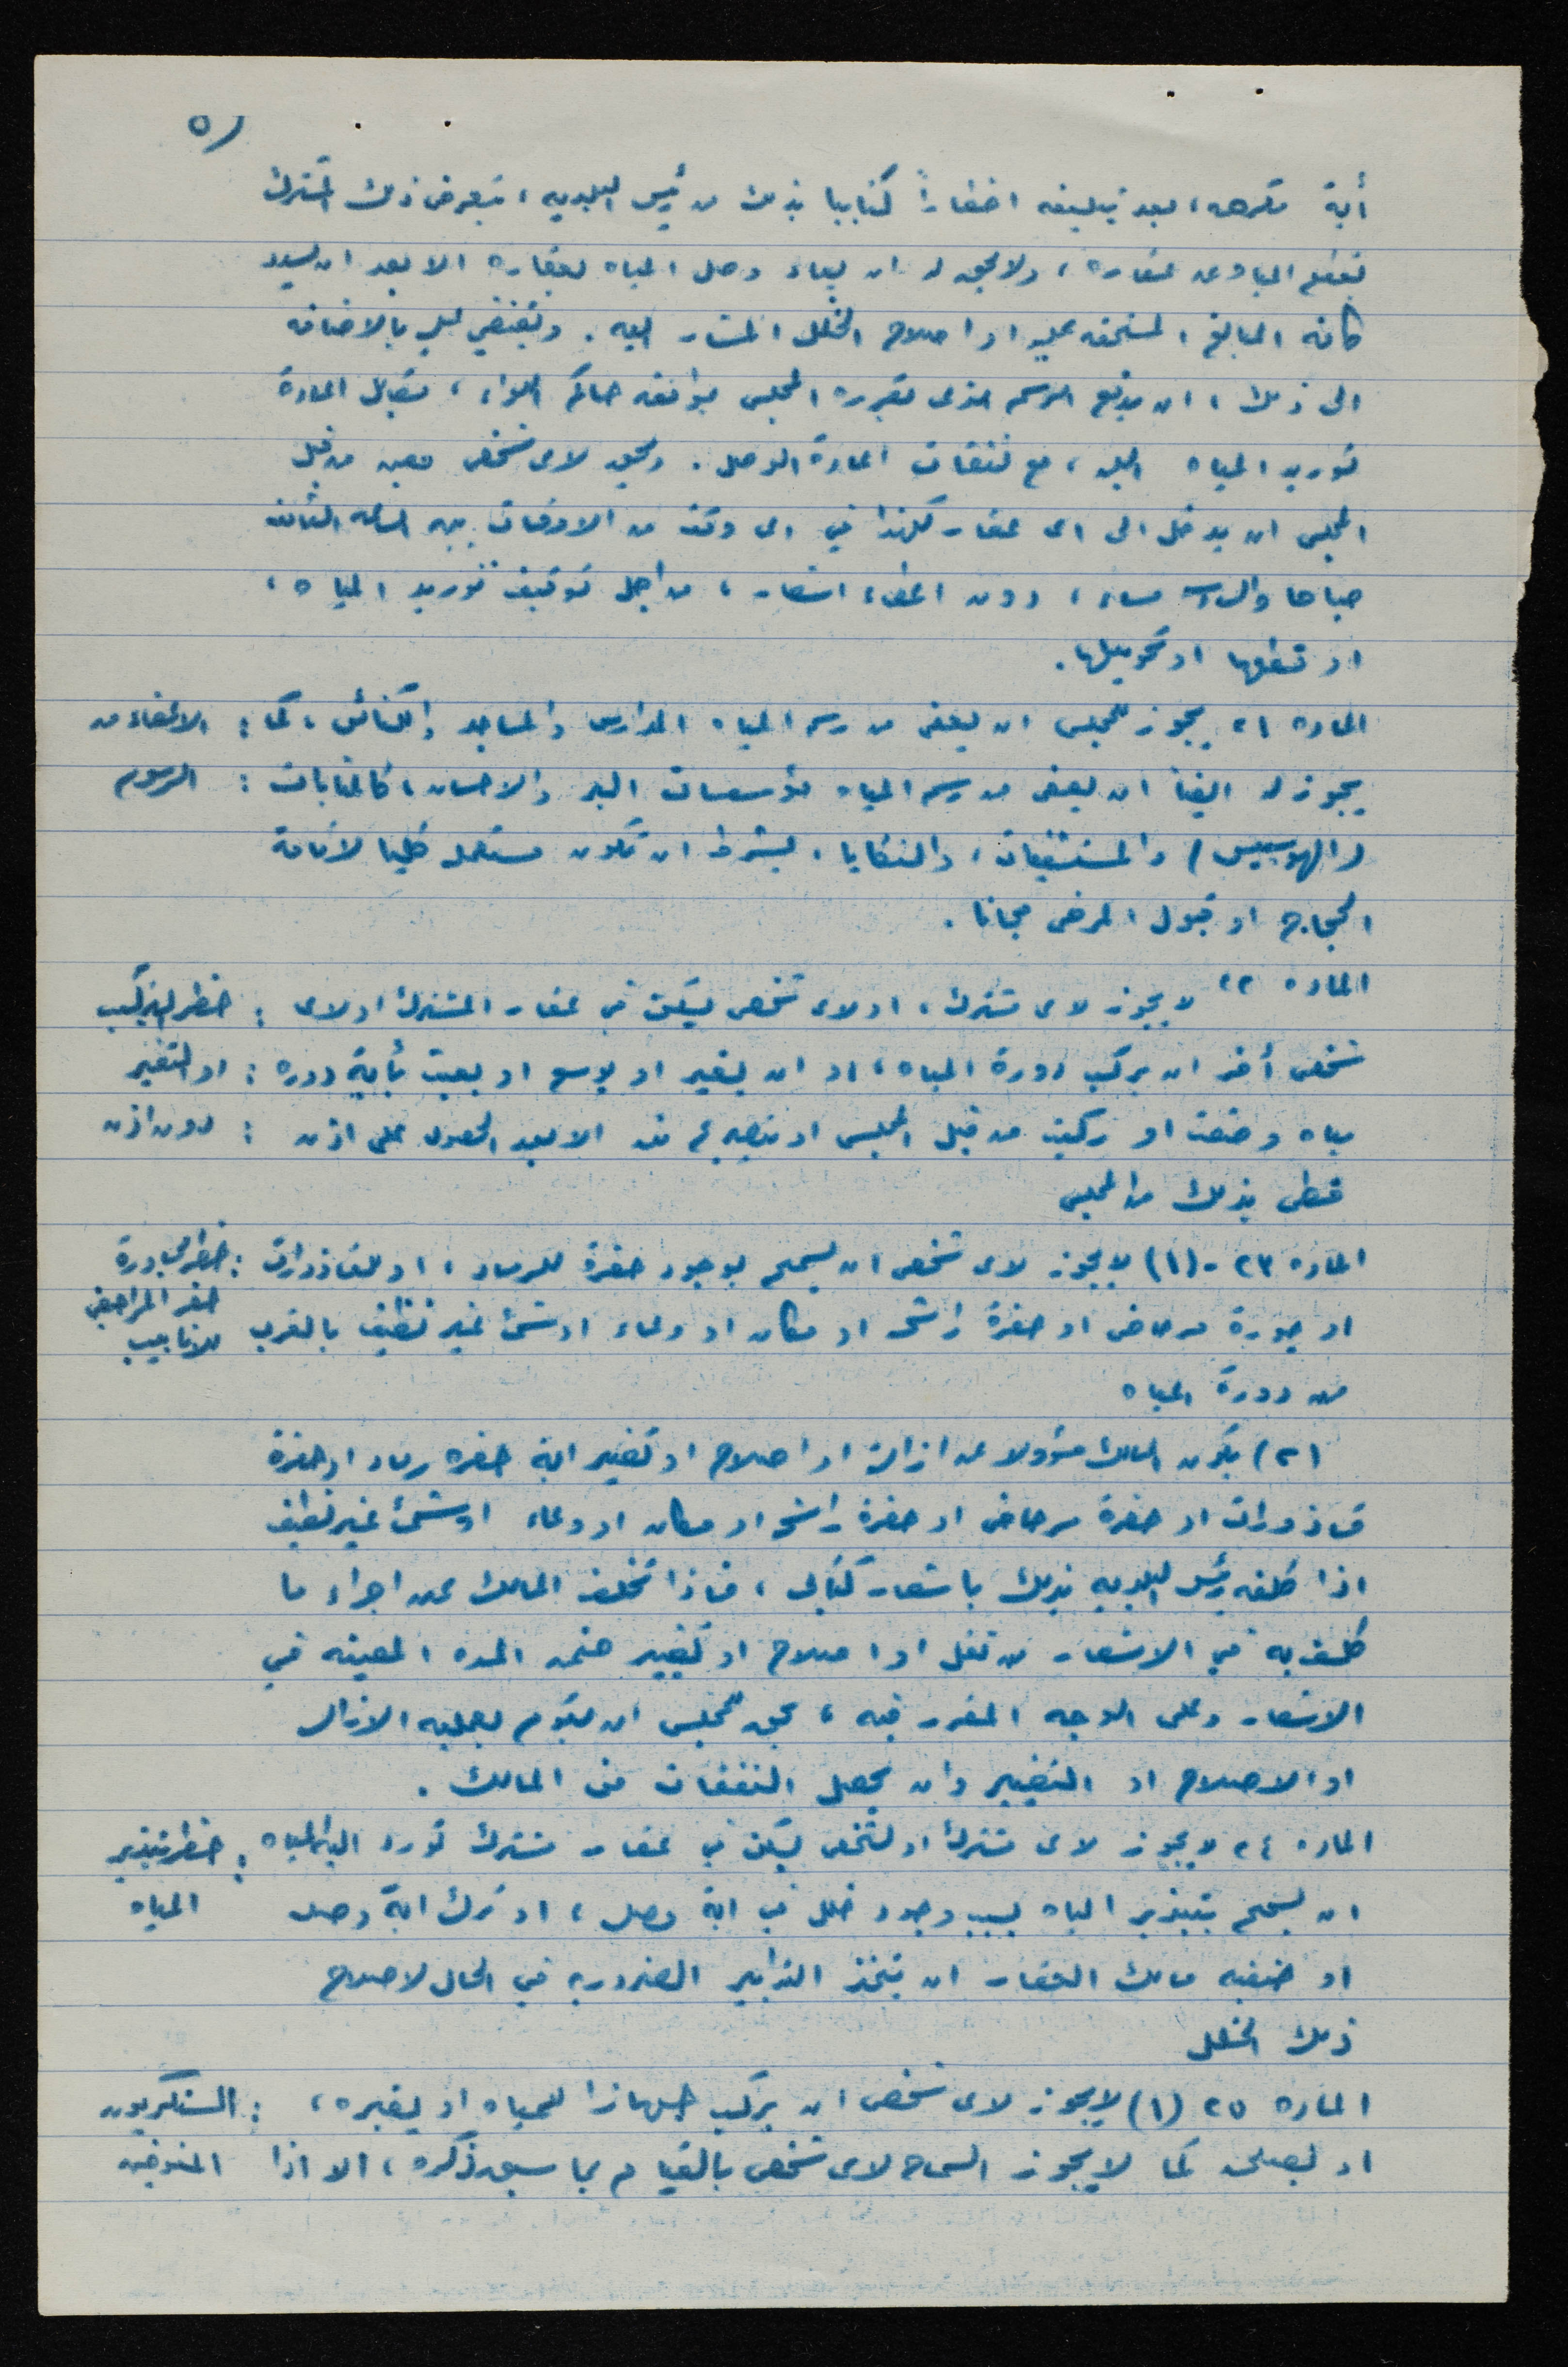 ٥)
أية مكرهه، بعد تبليغه اخطاراً كتابيا بذلك من رئيس البلديه، يتعرض ذلك المشترك
لقطع المياه عن عقاره، ولا يحق له ان يعاد وصل المياه لعقاره الا بعد ان يسدد
كافة المبالغ المستحقه عليه او اصلاح الخلل المشار اليه. ويقتضي عليه بالاضافه
الى ذلك، ان يدفع الرسم الذى يقرره المجلس بموافقه حاكم اللواء، مقابل اعادة
توريد المياه اليه، مع نفقات اعادة الوصل. ويحق لاى شخص معين من قبل
المجلس ان يدخل الى اى عقار كهذا في اى وقت من الاوقات بين الساعه الثامنه
صباحا والسادسه مساء، دون اعطاء اشعار، من اجل توقيف توريد المياه،
او قطعها او تحويلها.
الماده ٢١ يجوز للمجلس ان يعفى من رسم المياه المدارس والمساجد والكنائس، كما : الاعفاء من
يجوز له ايضا ان يعفى من رسم المياه مؤسسات البر والاحسان، كالخانات : الرسوم
(الهوسبيس) والمستشفيات، والتكايا، بشرط ان تكون مستعمله كليا لاقامة
الحجاج او قبول المرضى مجانا.
الماده ٢٢ لا يجوز لاى مشترك، او لاى شخص يسكن في عقار المشترك او لاى : حظر التركيب
شخص آخر ان يركب دورة المياه، او ان يغير او يوسع او يعبث بأية دوره : او التغيير
مياه وضعت او ركبت من قبل المجلس او بتصريح منه الا بعد الحصول على اذن : دون اذن
خطى بذلك من المجلس
الماده ٢٣ -(١) لا يجوز لاى شخص ان يسمح بوجود حفرة للرماد، او للقاذورات : حظر مجاورة
او جورة مرحاض او حفرة راشحه او مكان او وعاء او شئ غير نظيف بالقرب حفر المراحيض
من دورة المياه للانابيب
(٢) يكون المالك مسؤولا عن ازالة او اصلاح او تغيير اية حفره رماد او حفرة
قاذورات او حفرة مرحاض او حفرة راشحه او مكان او وعاء او شئ غير نظيف
اذا كلفه رئيس البلديه بذلك باشعار كتابي، فاذا تخلف المالك عن اجراء ما
كلف به في الاشعار من نقل او اصلاح او تغيير ضمن المده المعينه في
الاشعار وعلى الوجه المقرر فيه، يحق للمجلس ان يقوم بعمليه الازاله
او الاصلاح او التغيير وان يحصل النفقات من المالك.
الماده ٢٤ لا يجوز لاى مشترك او لشخص يسكن في عقار مشترك تورد اليه المياه : حظر تبذير
ان يسمح بتبذير المياه بسبب وجود خلل في اية وصله، او ترك اية وصله المياه
او حنفيه مالك العقار ان يتخذ التدابير الضروريه في الحال لاصلاح
ذلك الخلل
الماده ٢٥ (١) لا يجوز لاى شخص ان يركب جهازا للمياه او يغيره، : السنكريون
او يصلحه كما لا يجوز السماح لاى شخص بالقيام بما سبق ذكره، الا اذا المفوضين